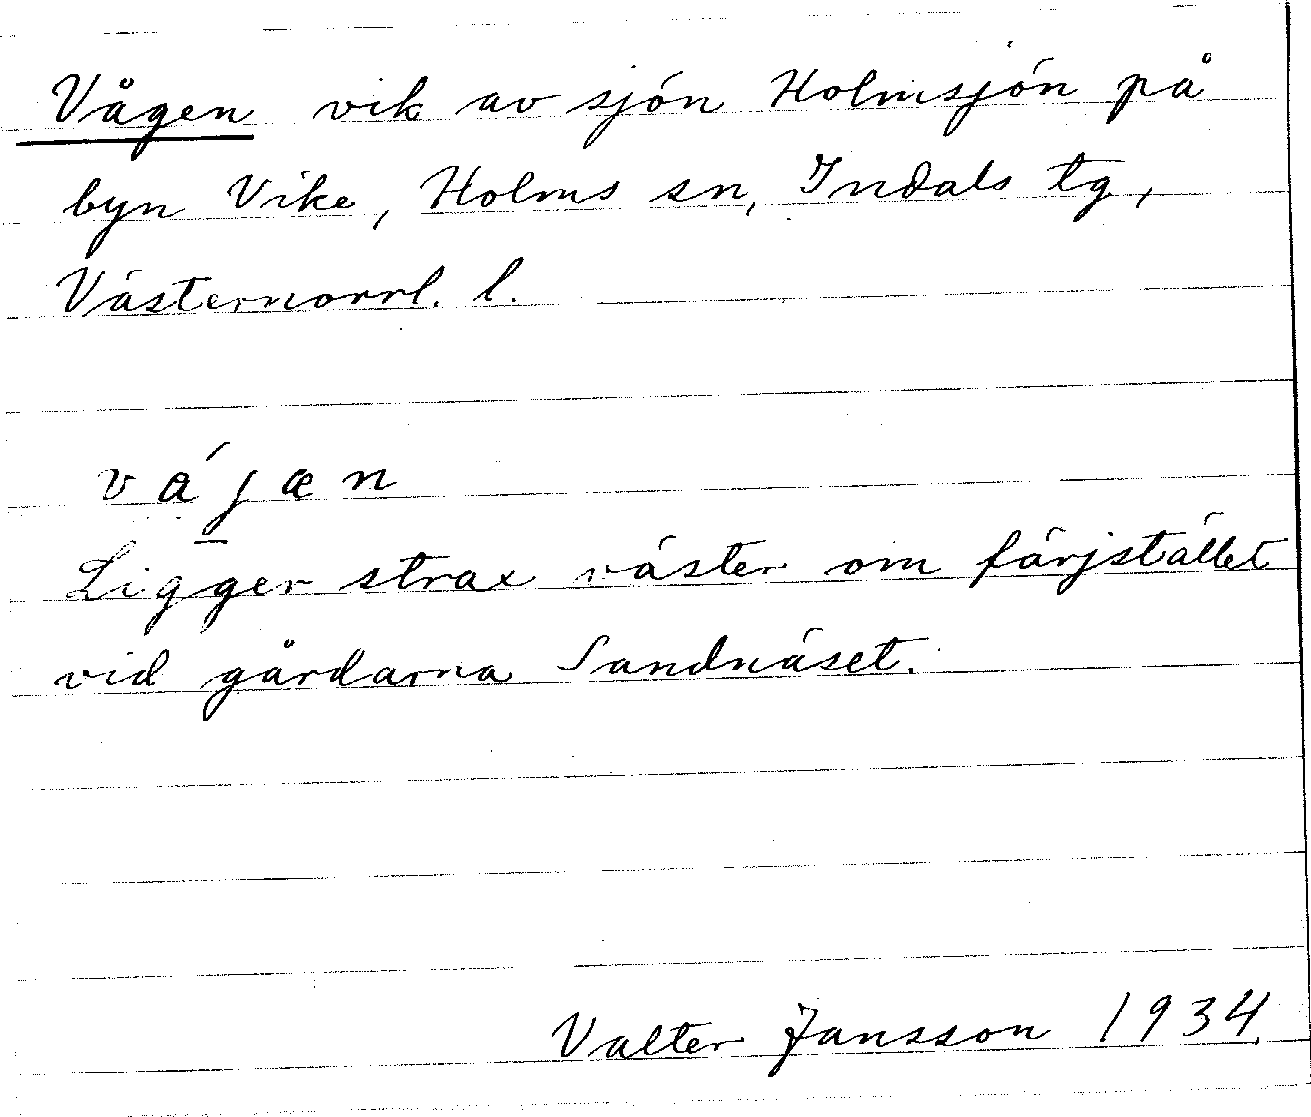 Vågen vik av sjön Holmsjön på
byn Vike, Holms sn, Indals tg,
Västernorrl. l.
vájæn
Ligger strax väster om färjstället
vid gårdarna Sandnäset.
Valter Jansson 1934.